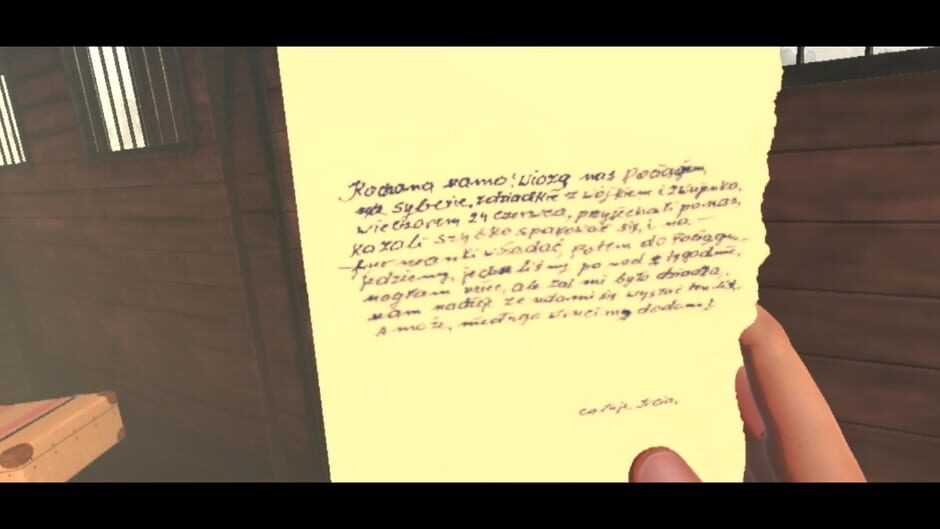 Kochana mamo! Wiozą nas Pociągiem,
na syberię, z dziadkiem z wójkiem i
wieczorem 24 czerwca, przyjechali po nas,
kazali szybko spakować się, i na
furmanki wsadać, Potem do Pociągu.
jedziemy, jechaliśmy ponad 2 tygodnie,
mogłam uciec, ale żal mi było dziadka.
mam nadzieję że uda mi się wysłać ten list.
a może, niedługo wrócimy do domu!
całuję. Zosia.